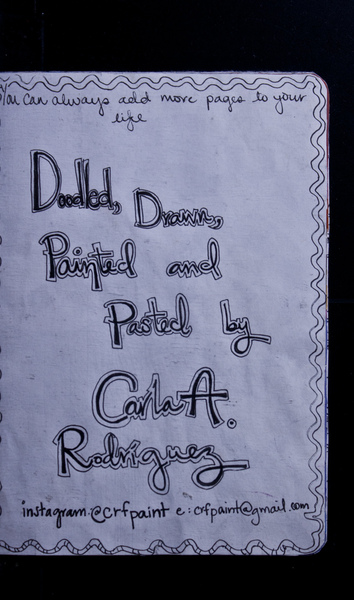 You can always add more pages to your
life
Doodled, Drawn,
Painted and
Pasted by
Carla A.
Rodríguez
instagram:@crfpaint e: crfpaint@gmail.com